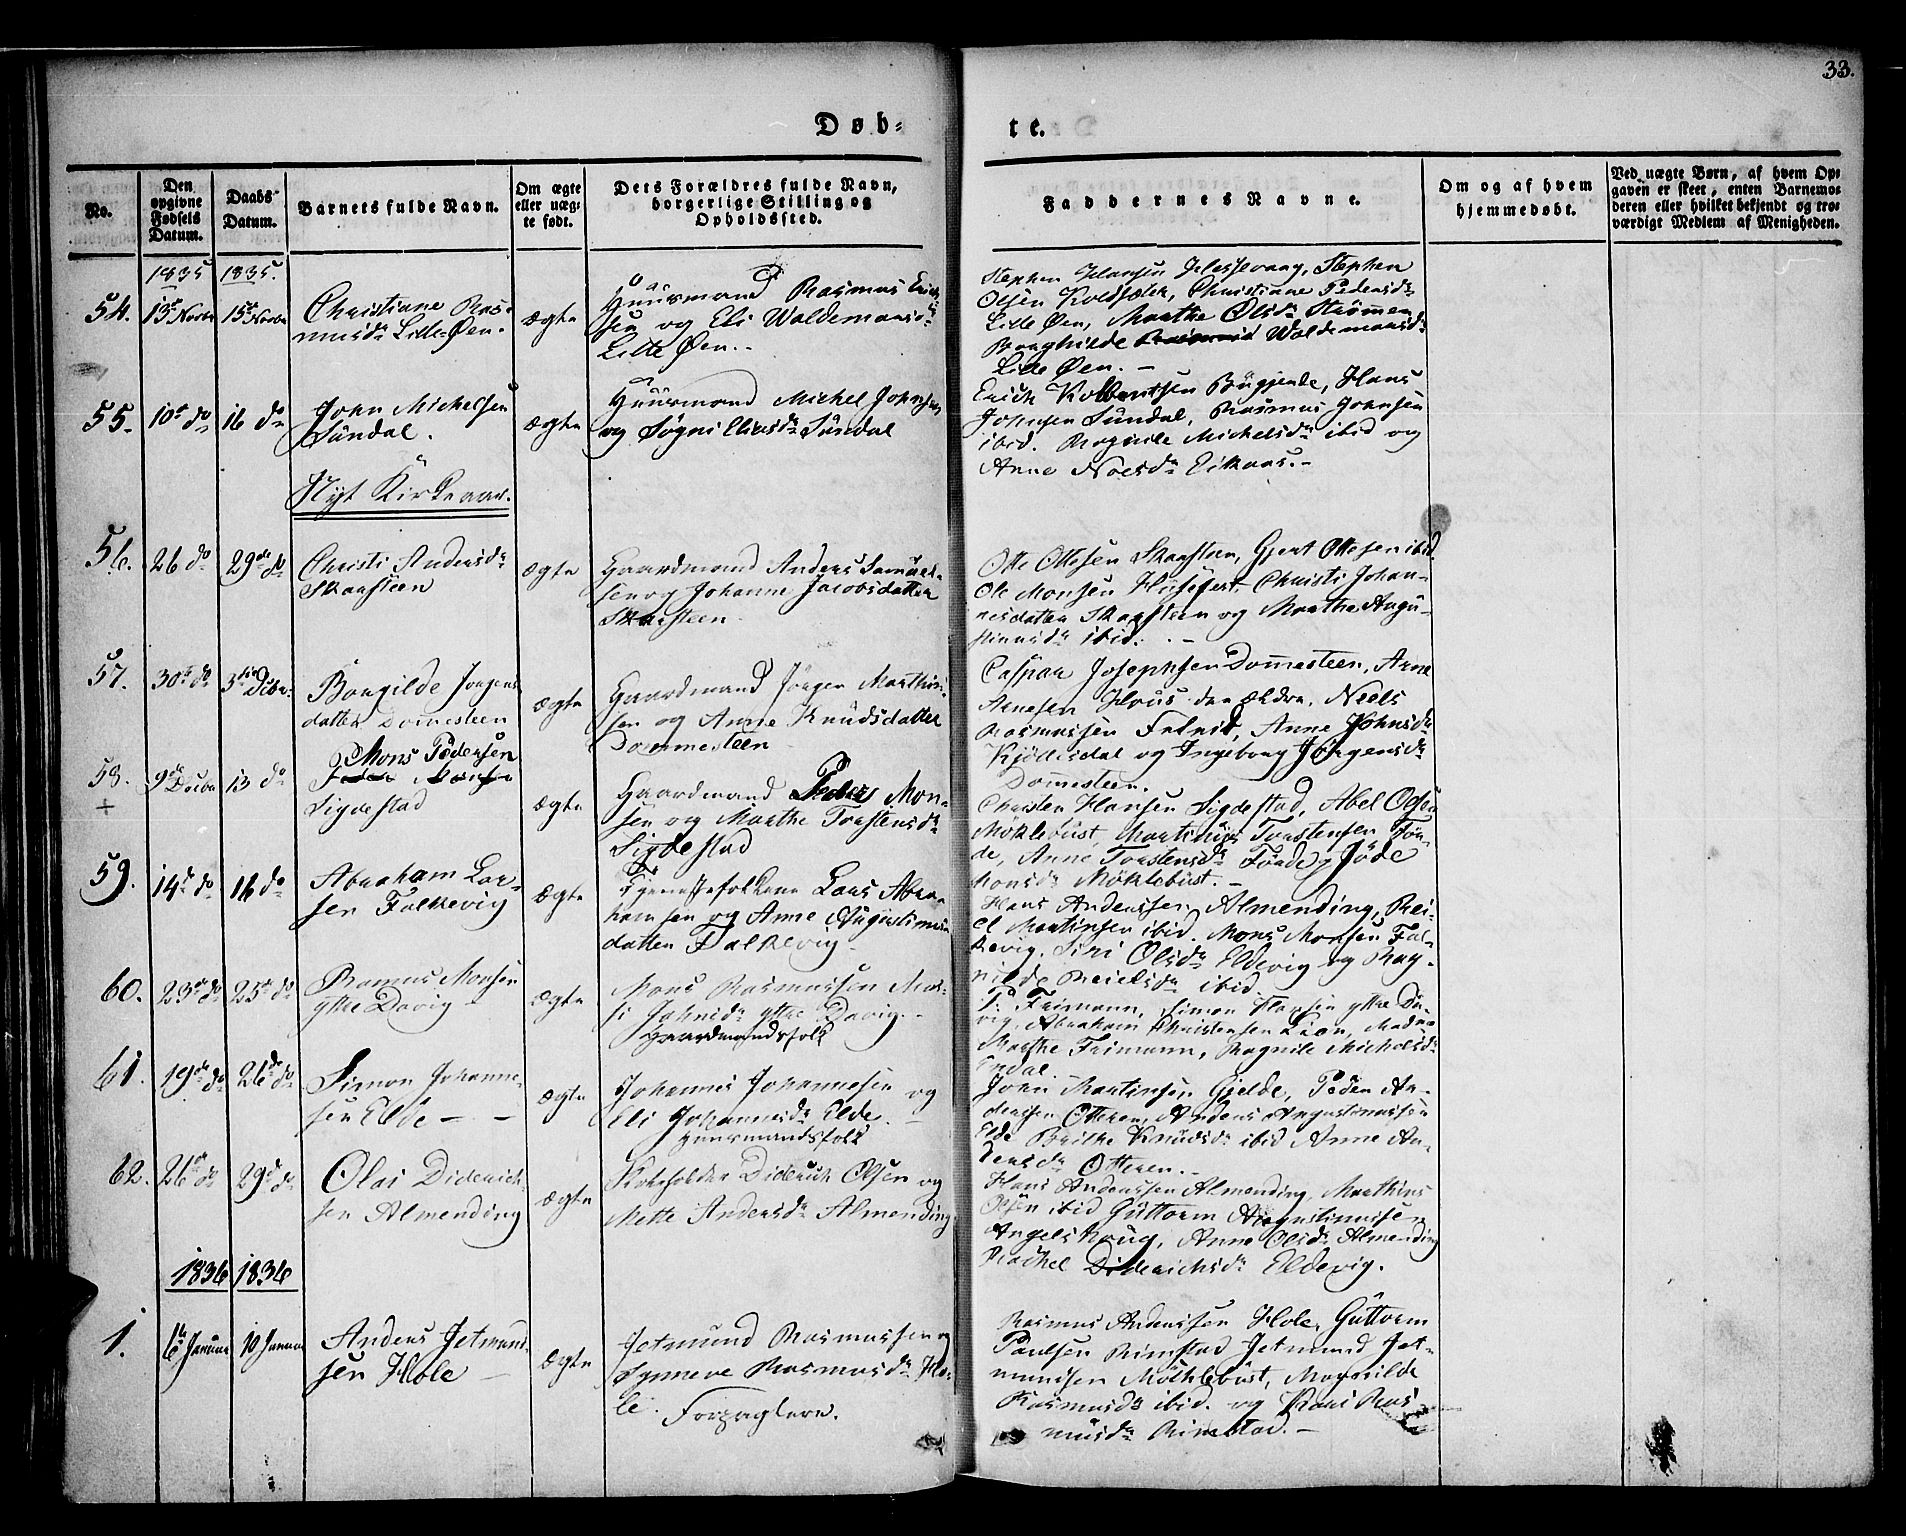 33.
Døb-
te.
No.
Den
opgivne
Fødsels
Datum.
Daabs
Datum.
Barnets fulde Navn.
Om ægte
eller uæg-
te født.
Dets Forældres fulde Navn,
borgerlige Stilling og
Opholdssted.
Faddernes Navne.
Om og af hvem
hjemmedøbt.
Ved uægte Børn, af hvem Op-
gaven er skeet, enten Barnemo-
deren eller hvilket bekjendt og tro-
værdigt Medlem af Menigheden.
1835 1835.
54. 13de Novbr 15de Novbr
Christiane Ras-
musdr Lille Øen.
ægte
Huusmand Rasmus Erich-
sen og Eli Waldemarsdr
Lille Øen.
Stephen Hansen Hessevaag, Stephen
Olsen Koldsæth, Christiane Pedersdr
Lille Øen, Marthe Olsdr Strømmen
Borghilde Waldemarsdr
Lille Øen. -
55. 10de do 16 do
John Michelsen
Sundal.
ægte
Huusmand Michel Johnsen
og Søgni Eliasdr Sundal
Erich Kolbentsen Bugjerde, Hans
Johnsen Sundal, Rasmus Johnsen
ibid. Ragnile Michelsdr ibid og
Anne Noesdr Eikaas. -
Nyt Kirkeaar.
56. 26 do 29de do
Christi Andersdr
Skarsteen
ægte
Gaardmand Anders Samuel-
sen og Johanne Jacobsdatter
Skarsteen
Otte Ottesen Skarsteen, Gjert Ottesen ibid.
Ole Monsen Husefest, Christi Johan-
nesdatter Skarsteen og Marthe Augu-
stinusdr ibid. -
57. 30te do 3die Decbr.
Borgilde Jørgens
datter Domesteen
ægte
Gaardmand Jørgen Marthini-
sen og Anne Knudsdatter
Dommesteen
Caspar Josephsen Dommesteen, Arne
Arnesen Hous den ældre, Niels
Rasmussen Felnid, Anne Johnsdr
Kjødisdal og Ingeborg Jørgensdr
Domesteen.
58. 9de Decbr 13 do
+
Mons Pedersen
Sigdestad
ægte
Gaardmand Peder Mon-
sen og Marthe Torstensdr
Sigdestad
Christen Hansen Sigdestad, Abel Olsen
Møklebust, Marthinus Torstensen Før-
de, Anne Torstensdr Førde og Jøde
Monsdr Møklebust. -
59. 14de do 16 do
Abraham Lar-
sen Falkevig
ægte
Tjenestefolkene Lars Abra-
hamsen og Anne Augustinus
datter Falkevig -
Hans Anderssen Almending, Rei-
el Martinsen ibid. Mons Monsen Fal-
kevig. Siri Olsdr Eldevig og Rag-
nilde Reielsdr ibid.
60. 23de do 25de do
Rasmus Monsen
ytre Davig -
ægte
Mons Rasmussen Mar-
ti Johnsdr ytre Davig. -
Gaardmandsfolk
P. Frimann, Simon Hansen ytre Da-
vig, Abraham Christensen Liøen, Madme
Marthe Frimann, Ragnile Michelsdr
Endal.
61. 19de do 26de do
Simon Johanne-
sen Elde - -
ægte
Johannes Johannesen og
Eli Johannesdr Elde. -
Huusmandsfolk
John Martinsen Gjelde, Peder An-
derssen Otteren, Anders Augustinussen
Elde Brithe Knudsdr ibid Anne An-
dersdr Otteren. -
62. 26de do 29de do
Olai Diderich-
sen Almending
ægte
Diderich Olsen og
Mette Andersdr Almending
Hans Anderssen Almending, Marthinus
Olsen ibid Guttorm Augustinusen
Angelskaug, Anne Olsdr Almending
Rachel Diderichsdr Eldevig.
1836 1836
1. 6te Januar 10 Januar
Anders Jetmund-
sen Hole -
ægte
Jetmund Rasmussen og
Synneve Rasmusdr Ho-
le. Forpagtere.
Rasmus Anderssen Hole, Guttorm
Paulsen Rimstad Jetmund Jet-
mundsen Møklebust, Magnilde
Rasmusdr ibid. og Kari Ras
musdr Rimstad. -